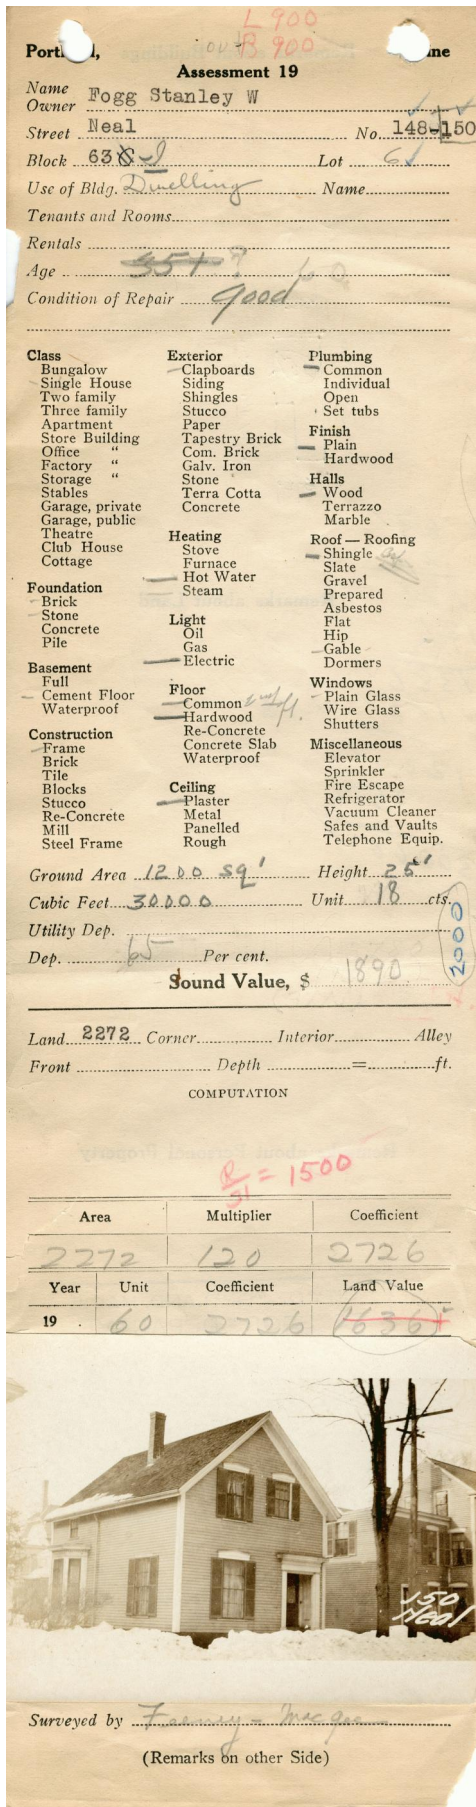 L 900
B 900
Port
ne
Assessment 19
Name
Owner Fogg Stanley W
Street Neal No. 148-150
Block 63 I Lot 6
Use of Bldg. Dwelling Name
Tenants and Rooms
Rentals
Age 35+ ?
Condition of Repair good
Class
Bungalow
Single House
Two family
Three family
Apartment
Store Building
Office "
Factory "
Storage "
Stables
Garage, private
Garage, public
Theatre
Club House
Cottage
Foundation
Brick
Stone
Concrete
Pile
Basement
Full
Cement Floor
Waterproof
Construction
Frame
Brick
Tile
Blocks
Stucco
Re-Concrete
Mill
Steel Frame
Exterior
Clapboards
Siding
Shingles
Stucco
Paper
Tapestry Brick
Com. Brick
Galv. Iron
Stone
Terra Cotta
Concrete
Heating
Stove
Furnace
Hot Water
Steam
Light
Oil
Gas
Electric
Floor
Common
Hardwood
Re-Concrete
Concrete Slab
Waterproof
Ceiling
Plaster
Metal
Panelled
Rough
Plumbing
Common
Individual
Open
Set tubs
Finish
Plain
Hardwood
Halls
Wood
Terrazzo
Marble
Roof — Roofing
Shingle
Slate
Gravel
Prepared
Asbestos
Flat
Hip
Gable
Dormers
Windows
Plain Glass
Wire Glass
Shutters
Miscellaneous
Elevator
Sprinkler
Fire Escape
Refrigerator
Vacuum Cleaner
Safes and Vaults
Telephone Equip.
Ground Area 1200 sq' Height 25'
Cubic Feet 30000 Unit 18 cts.
Utility Dep.
2000
Dep. 65 Per cent.
Sound Value, $ 1890
Land 2272 Corner Interior Alley
Front Depth = ft.
COMPUTATION
R/31 = 1500
Area Multiplier Coefficient
2272 120 2726
Year Unit Coefficient Land Value
19 60 2726 1636
150
Neal
Surveyed by Feeney -
(Remarks on other Side)